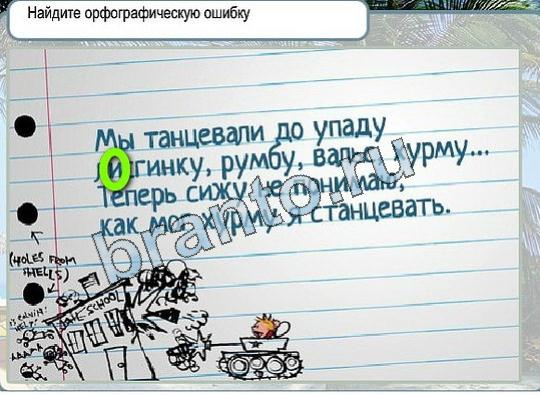 Найдите орфографическую ошибку
Мы танцевали до упаду
гинку, румбу, вальс, хурму...
Теперь сижу, не понимаю,
как мог хурму я станцевать.
branto.ru
(HOLES FROM
HELLS)
SCHOOL
HELP!
AAAAA